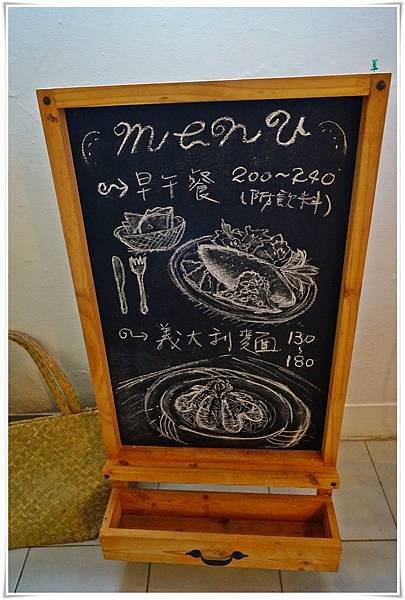 menu
早午餐 200~240
(附飲料)
義大利麵 130
~
180